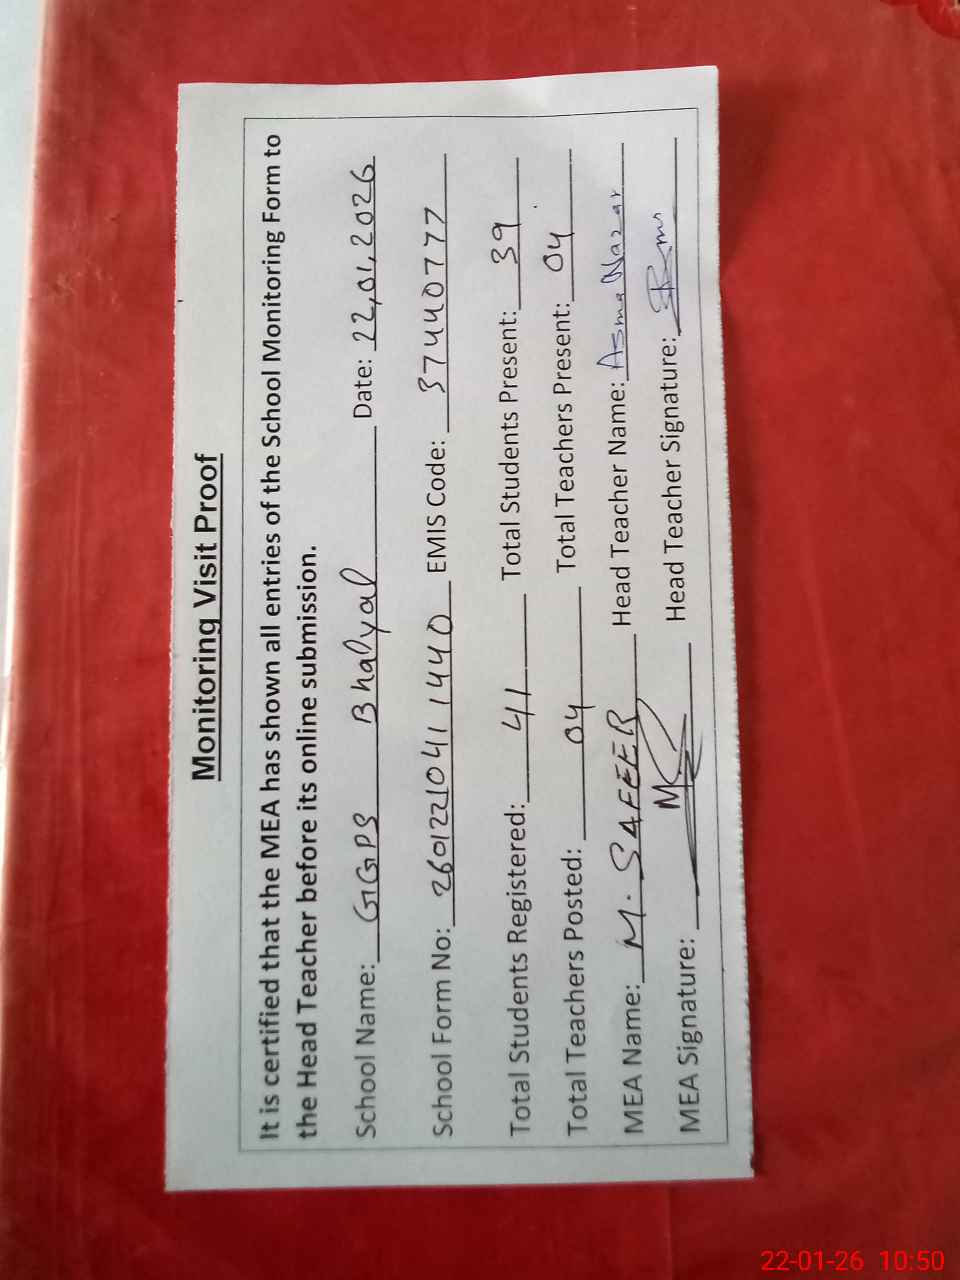 Monitoring Visit Proof
It is certified that the MEA has shown all entries of the School Monitoring Form to
the Head Teacher before its online submission.
School Name: GGPS Bhalyal Date: 22,01,2026
School Form No: 26012210411440 EMIS Code: 37440777
Total Students Registered: 41 Total Students Present: 39
Total Teachers Posted: 04 Total Teachers Present: 04
MEA Name: M. SAFEER Head Teacher Name: Asma Nazar
MEA Signature: Head Teacher Signature:
22-01-26 10:50